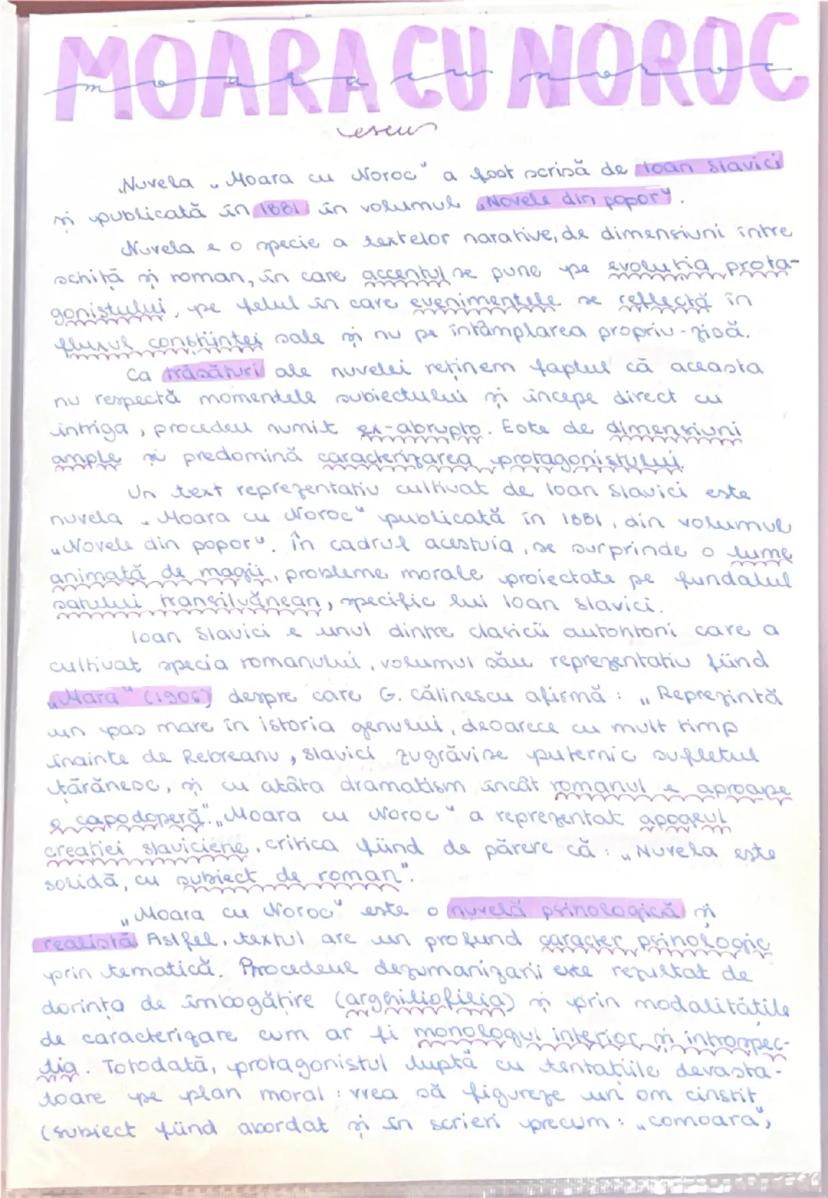 MOARA CU NOROC
moara cu noroc
eseu
Nuvela „Moara cu Noroc" a fost scrisă de Ioan Slavici
și publicată în 1881 în volumul „Novele din popor".
Nuvela e o specie a textelor narative, de dimensiuni între
schiță și roman, în care accentul se pune pe evoluția prota-
gonistului, pe felul în care evenimentele se reflectă în
fluxul conștiinței sale și nu pe întâmplarea propriu-zisă.
Ca trăsături ale nuvelei reținem faptul că aceasta
nu respectă momentele subiectului și începe direct cu
intriga, procedeu numit ex-abrupto. Este de dimensiuni
ample și predomină caracterizarea protagonistului.
Un text reprezentativ cultivat de Ioan Slavici este
nuvela „Moara cu Noroc" publicată în 1881, din volumul
„Novele din popor". În cadrul acestuia, se surprinde o lume
animată de magii, probleme morale proiectate pe fundalul
satului transilvănean, specific lui Ioan Slavici.
Ioan Slavici e unul dintre clasicii autohtoni care a
cultivat specia romanului, volumul său reprezentativ fiind
„Mara" (1906) despre care G. Călinescu afirmă: „Reprezintă
un pas mare în istoria genului, deoarece cu mult timp
înainte de Rebreanu, Slavici zugrăvise puternic sufletul
țărănesc, și cu atâta dramatism încât romanul e aproape
o capodoperă". „Moara cu Noroc" a reprezentat apogeul
creației slaviciene, critica fiind de părere că: „Nuvela este
solidă, cu subiect de roman".
„Moara cu Noroc" este o nuvelă psihologică și
realistă. Astfel, textul are un profund caracter psihologic
prin tematică. Procedeul dezumanizării este rezultat de
dorința de îmbogățire (arghiliofilia) și prin modalitățile
de caracterizare cum ar fi monologul interior și introspec-
ția. Totodată, protagonistul luptă cu tentațiile devasta-
toare pe plan moral: vrea să figureze un om cinstit,
(subiect fiind abordat și în scrieri precum: „Comoara",